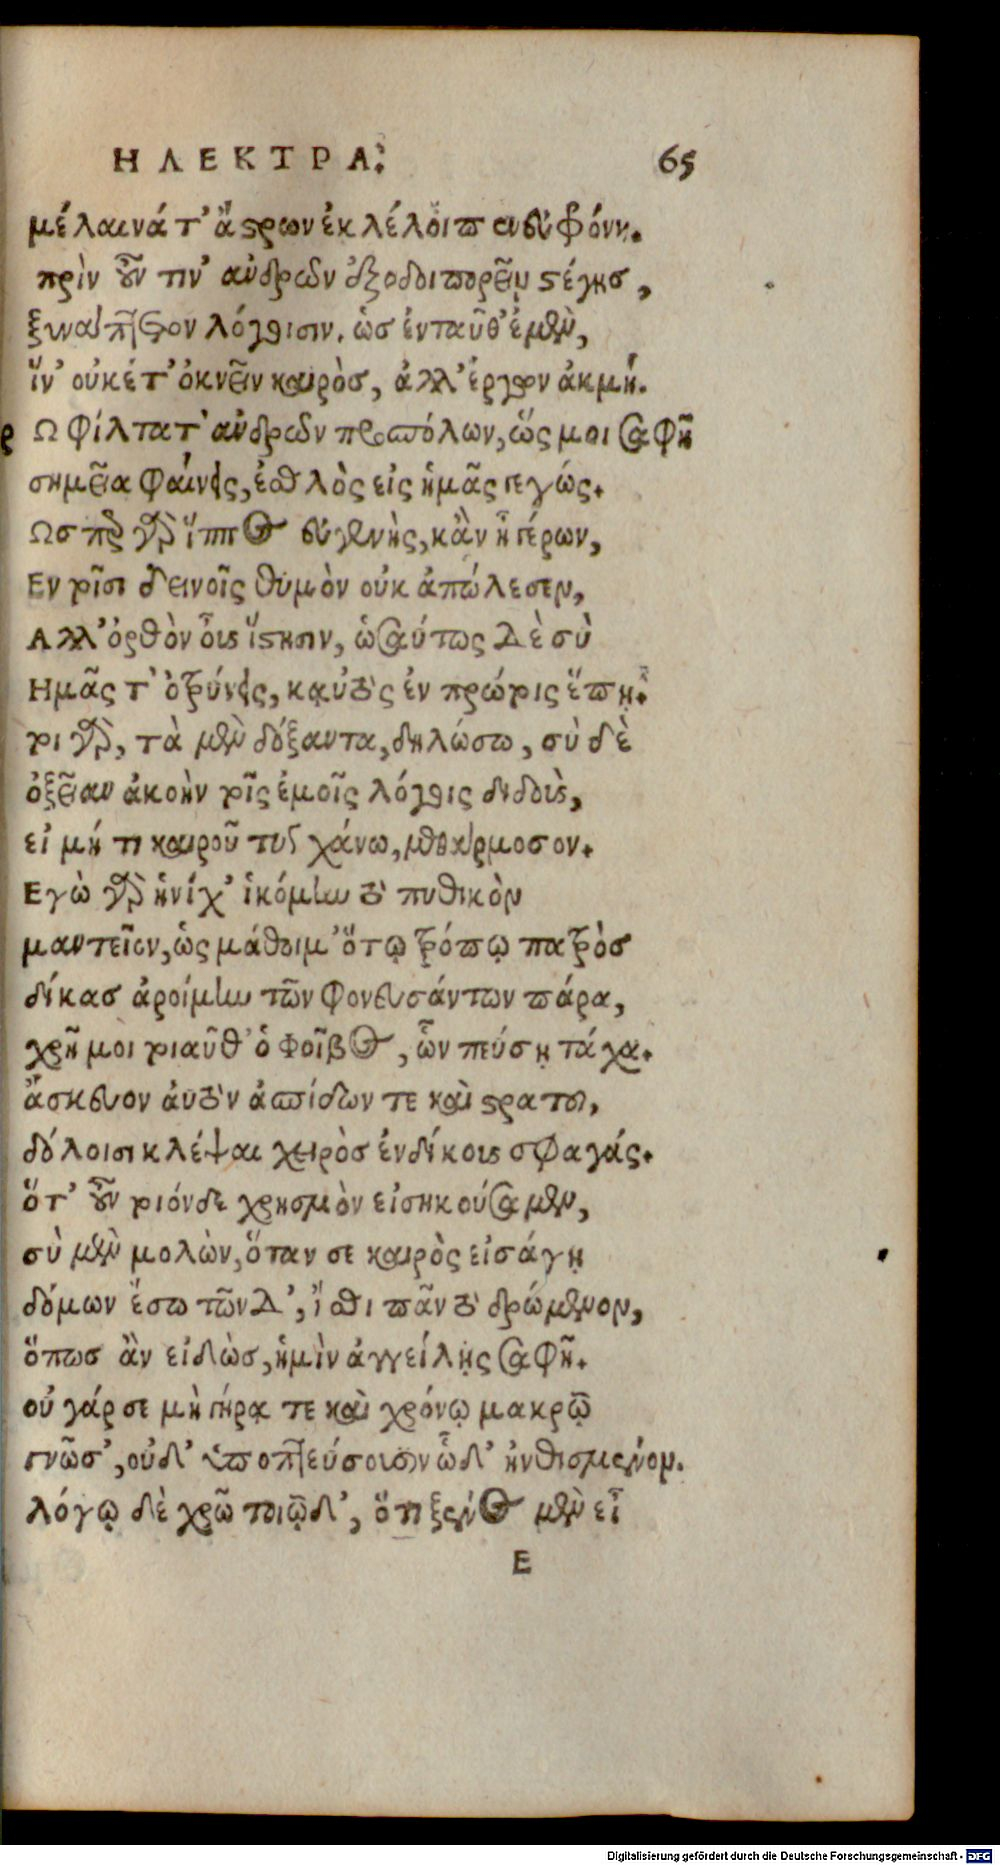 ΗΛΕΚΤΡΑ: 65
μέλαινά τ' ἄστρων ἐκλέλοιπεν εὐφρόνη.
πρὶν οὖν τιν' ἀνδρῶν ἐξοδοιπορεῖν στέγησ,
ξυνάπτετον λόγοισιν. ὡσ ἐνταῦθ' ἐμὲν,
ἵν' οὐκέτ' ὀκνεῖν καιρὸσ, ἀλλ' ἔργων ἀκμή.
Ορ Ω φίλτατ' ἀνδρῶν προσπόλων, ὥς μοι σαφῆ
σημεῖα φαίνεις, ἐσθλὸς εἰς ἡμᾶς γεγώς.
Ωσπερ γὰρ ἵππος εὐγενὴς, κἂν ᾖ γέρων,
Εν τοῖσι δεινοῖς θυμὸν οὐκ ἀπώλεσεν,
Αλλ' ὀρθὸν οὖς ἵστησιν, ὡσαύτως δὲ σὺ
Ημᾶς τ' ὀτρύνεις, καὐτὸς ἐν πρώτοις ἕπῃ.
τοι γὰρ, τὰ μὲν δόξαντα, δηλώσω, σὺ δὲ
ὀξεῖαν ἀκοὴν τοῖς ἐμοῖς λόγοις διδοὺς,
εἰ μή τι καιροῦ τυγχάνω, μεθάρμοσον.
Εγὼ γὰρ ἡνίχ' ἱκόμην τὸ πυθικὸν
μαντεῖον, ὡς μάθοιμ' ὅτῳ τρόπῳ πατρὸσ
δίκασ ἀροίμην τῶν φονευσάντων πάρα,
χρῇ μοι τοιαῦθ' ὁ Φοῖβος, ὧν πεύσῃ τάχα.
ἄσκευον αὐτὸν ἀσπίδων τε καὶ στρατοῦ,
δόλοισι κλέψαι χειρὸσ ἐνδίκους σφαγάς.
ὅτ' οὖν τοιόνδε χρησμὸν εἰσηκούσαμεν,
σὺ μὲν μολὼν, ὅταν σε καιρὸς εἰσάγῃ
δόμων ἔσω τῶνδ', ἴσθι πᾶν τὸ δρώμενον,
ὅπωσ ἂν εἰδὼσ, ἡμὶν ἀγγείλῃς σαφῆ.
οὐ γάρ σε μὴ γήρᾳ τε καὶ χρόνῳ μακρῷ
γνῶσ', οὐδ' ὑποπτεύσουσιν ὧδ' ἠνθισμένον.
λόγῳ δὲ χρῶ τοιῷδ', ὅτι ξένος μὲν εἶ
E
Digitalisierung gefördert durch die Deutsche Forschungsgemeinschaft - DFG